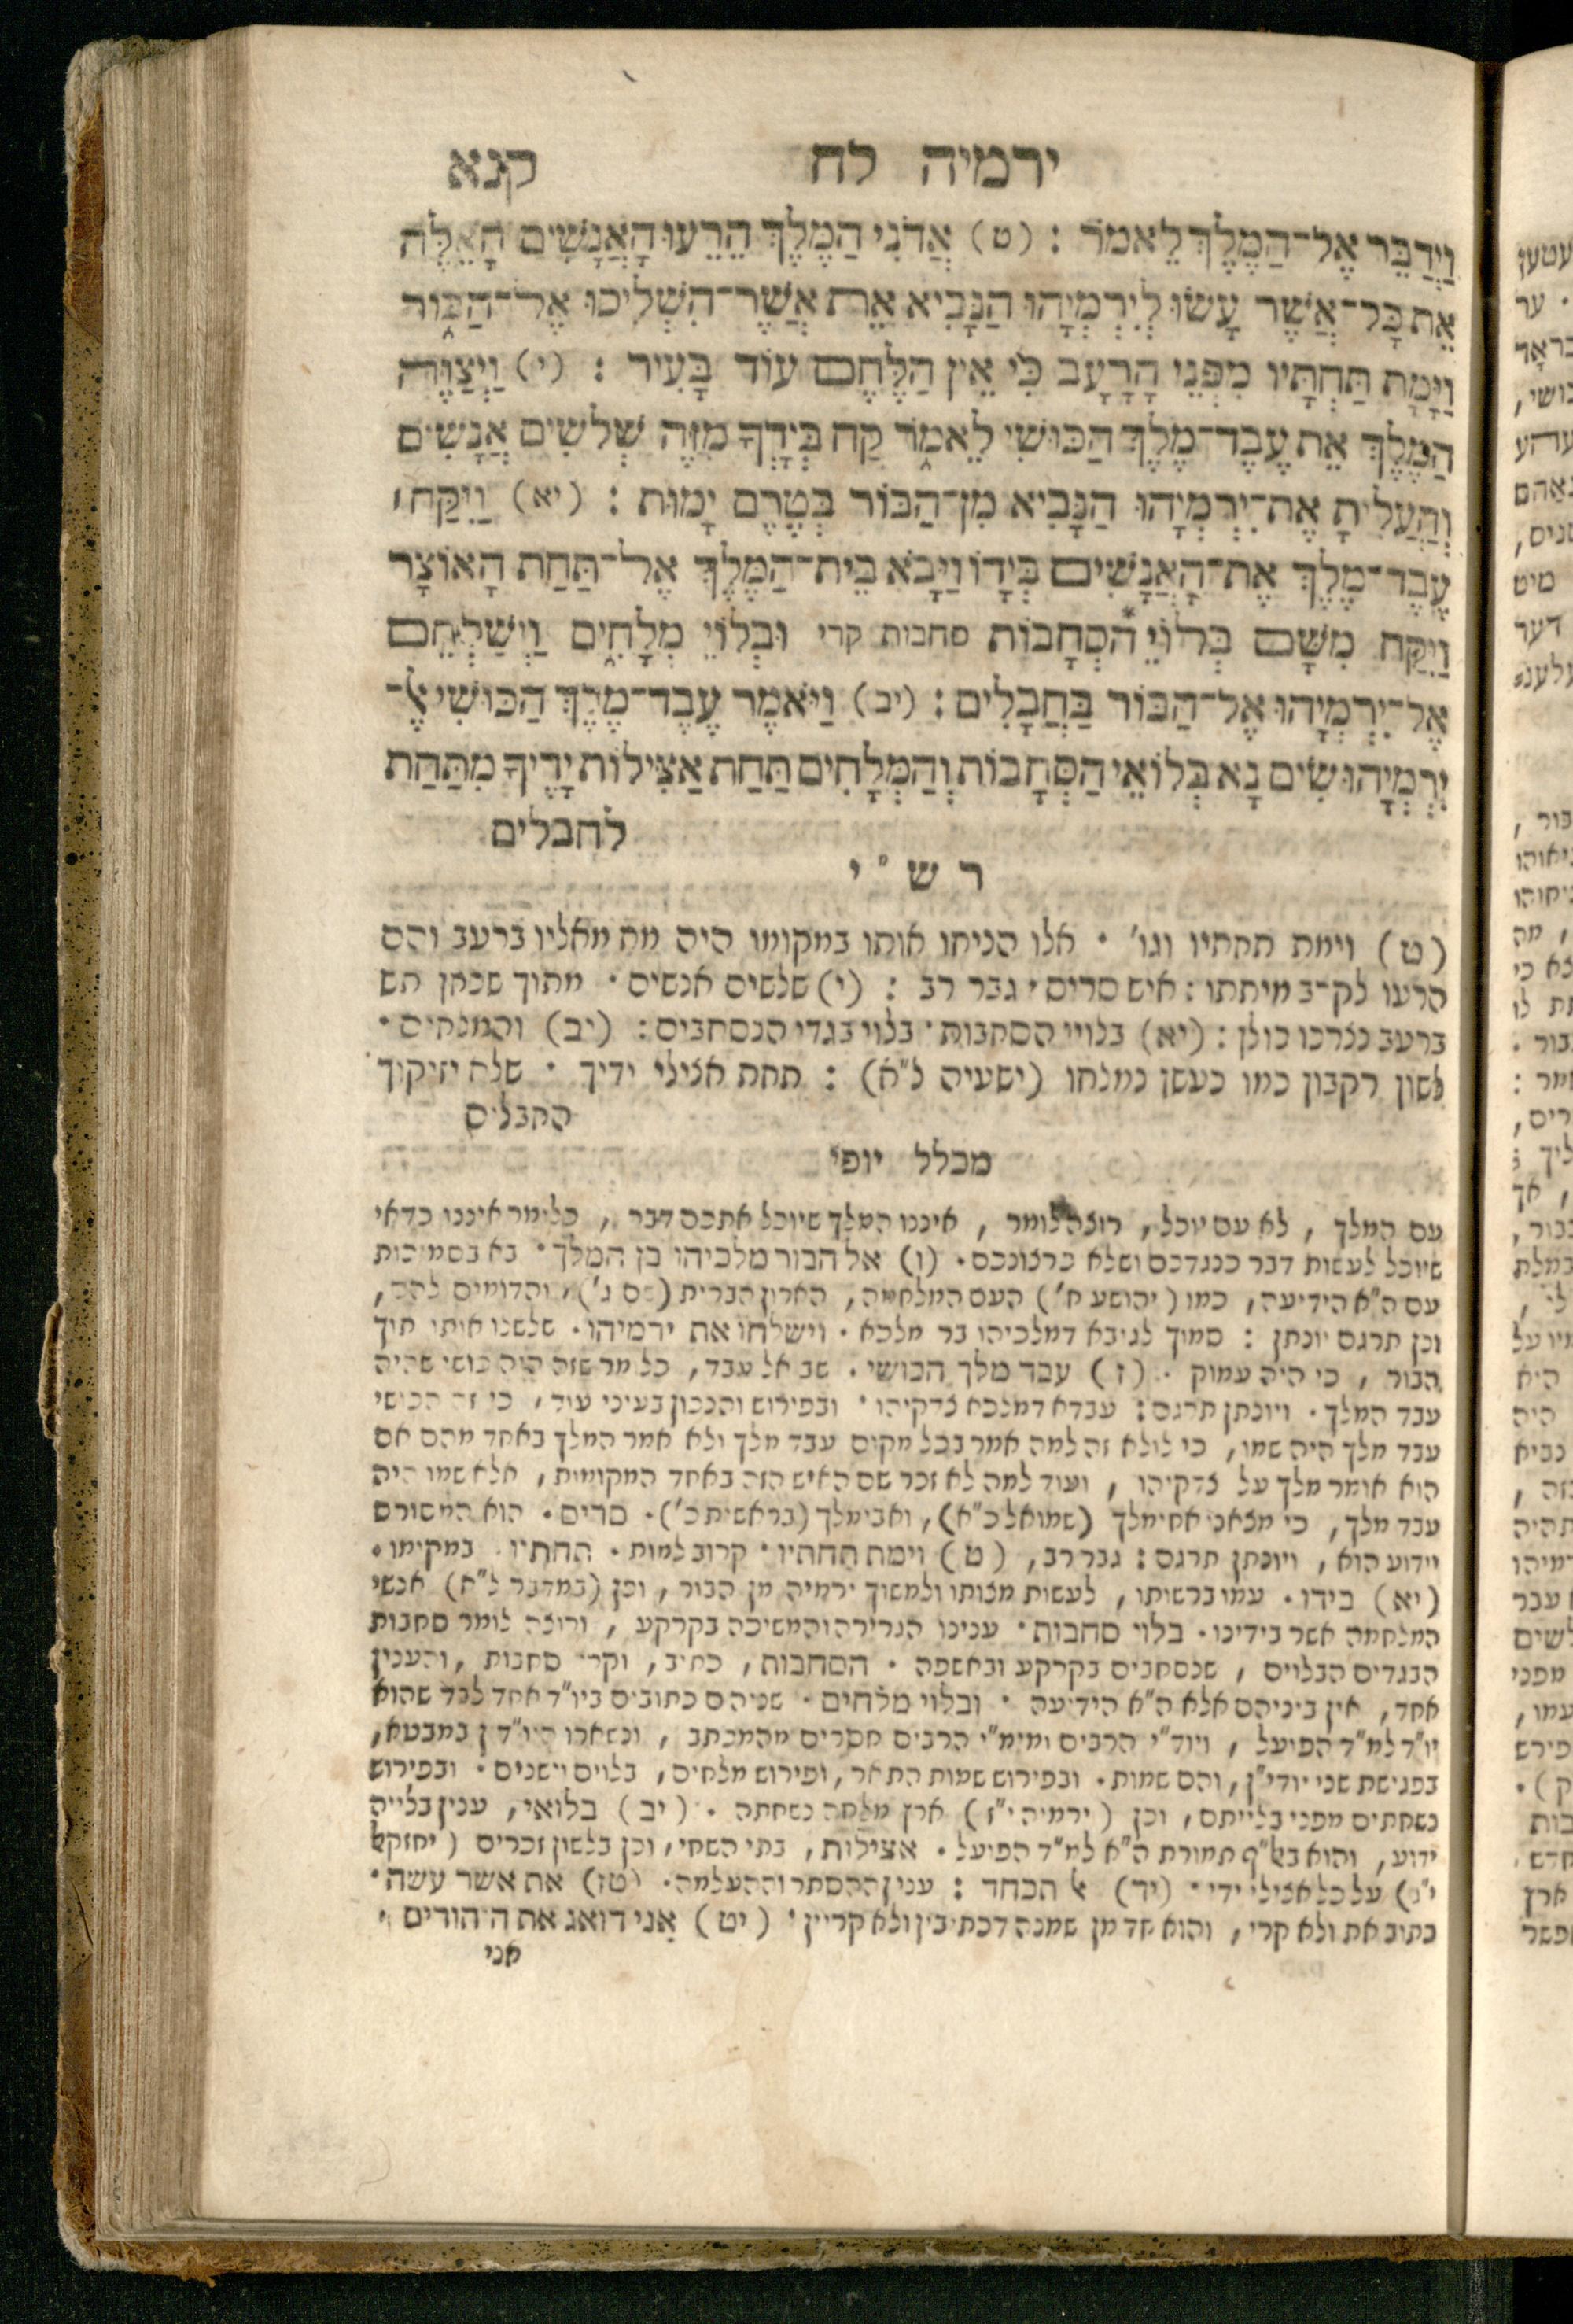 ירמיה לח קנא
וַיְדַבֵּר אֶל־הַמֶּלֶךְ לֵאמֹר : (ט) אֲדֹנִי הַמֶּלֶךְ הֵרֵעוּ הָאֲנָשִׁים הָאֵלֶּה
אֵת כָּל־אֲשֶׁר עָשׂוּ לְיִרְמְיָהוּ הַנָּבִיא אֵת אֲשֶׁר־הִשְׁלִיכוּ אֶל־הַבּוֹר
וַיָּמָת תַּחְתָּיו מִפְּנֵי הָרָעָב כִּי אֵין הַלֶּחֶם עוֹד בָּעִיר : (י) וַיְצַוֶּה
הַמֶּלֶךְ אֵת עֶבֶד־מֶלֶךְ הַכּוּשִׁי לֵאמֹר קַח בְּיָדְךָ מִזֶּה שְׁלֹשִׁים אֲנָשִׁים
וְהַעֲלִיתָ אֶת־יִרְמְיָהוּ הַנָּבִיא מִן־הַבּוֹר בְּטֶרֶם יָמוּת : (יא) וַיִּקַּח ׀
עֶבֶד־מֶלֶךְ אֶת־הָאֲנָשִׁים בְּיָדוֹ וַיָּבֹא בֵית־הַמֶּלֶךְ אֶל־תַּחַת הָאוֹצָר
וַיִּקַּח מִשָּׁם בְּלוֹיֵ *הסְחָבוֹת סחבות קרי וּבְלוֹיֵ מְלָחִים וַיְשַׁלְּחֵם
אֶל־יִרְמְיָהוּ אֶל־הַבּוֹר בַּחֲבָלִים : (יב) וַיֹּאמֶר עֶבֶד־מֶלֶךְ הַכּוּשִׁי אֶל־
יִרְמְיָהוּ שִׂים נָא בְּלוֹאֵי הַסְּחָבוֹת וְהַמְּלָחִים תַּחַת אַצִּילוֹת יָדֶיךָ מִתַּחַת
לחבלים
רש"י
(ט) וימת תחתיו וגו' · אלו הניחו אותו במקומו היה מת מאליו ברעב והם
הרעו לק־ב מיתתו : איש סריס · גבר רב : (י) שלשים אנשים · מתוך שכחן תש
ברעב נצרכו כולן : (יא) בלויי הסחבות · בלוי בגדי הנסחבים : (יב) והמלחים ·
לשון רקבון כמו כעשן נמלחו (ישעיה נ"א) : תחת אצילי ידיך · שלא יזיקוך
החבלים
מכלל יופי
עם המלך , לא עם יוכל , רוצה לומר , איננו המלך שיוכל אתכם דבר , כלומר איננו כדאי
שיוכל לעשות דבר כנגדכם ושלא כרצונכם · (ו) אל הבור מלכיהו בן המלך · בא בסמיכות
עם ה"א הידיעה , כמו (יהושע ח') העם המלחמה , הארון הברית (שם ג') , והדומים להם ,
וכן תרגם יונתן : סמוך לגיבא דמלכיהו בר מלכא · וישלחו את ירמיהו · שלשלו אותו תוך
הבור , כי היה עמוק · (ז) עבד מלך הכושי · שב אל עבד , כלומר שזה היה כושי שהיה
עבד המלך · ויונתן תרגם : עבדא דמלכא צדקיהו · ובפירוש והנכון בעיני עוד , כי זה הכושי
עבד מלך היה שמו , כי לולא זה למה אמר בכל מקום עבד מלך ולא אמר המלך באחד מהם אם
הוא אומר מלך על צדקיהו , ועוד למה לא זכר שם האיש הזה באחד המקומות , אלא שמו היה
עבד מלך , כי מצאנו אחימלך (שמואל כ"א) , ואבימלך (בראשית כ') · סריס · הוא המסורס
וידוע הוא , ויונתן תרגם : גבר רב , (ט) וימת תחתיו · קרוב למות · תחתיו · במקומו ·
(יא) בידו · עמו ברשותו , לעשות מצותו ולמשוך ירמיה מן הבור , וכן (במדבר ל"א) אנשי
המלחמה אשר בידינו · בלוי סחבות · ענינו הגרירה והמשיכה בקרקע , ורוצה לומר סחבות
הבגדים הבלוים , שנסחבים בקרקע ובאשפה · הסחבות , כתיב , וקרי סחבות , והענין
אחד , אין ביניהם אלא ה"א הידיעה · ובלוי מלחים · שניהם כתובים ביו"ד אחד לבד שהוא
יו"ד למ"ד הפועל , ויוד"י הרבים ומימ"י הרבים חסרים מהמכתב , ונשארו היו"דן במבטא ,
בפגישת שני יודי"ן , והם שמות · ובפירוש שמות התאר , ופירוש מלחים , בלוים וישנים · ובפירוש
נשחתים מפני בלייתם , וכן (ירמיה י"ז) ארץ מלחה נשחתה · (יב) בלואי , ענין בלייה
ידוע , והוא באל"ף תמורת ה"א למ"ד הפועל · אצילות , בתי השחי , וכן בלשון זכרים (יחזקאל
י"ג) על כל אצילי ידי · (יד) אל תכחד : ענין ההסתר וההעלמה · (טז) את אשר עשה ·
כתוב את ולא קרי , והוא חד מן שמנה דכתיבין ולא קריין · (יט) אני דואג את היהודים ,
אני